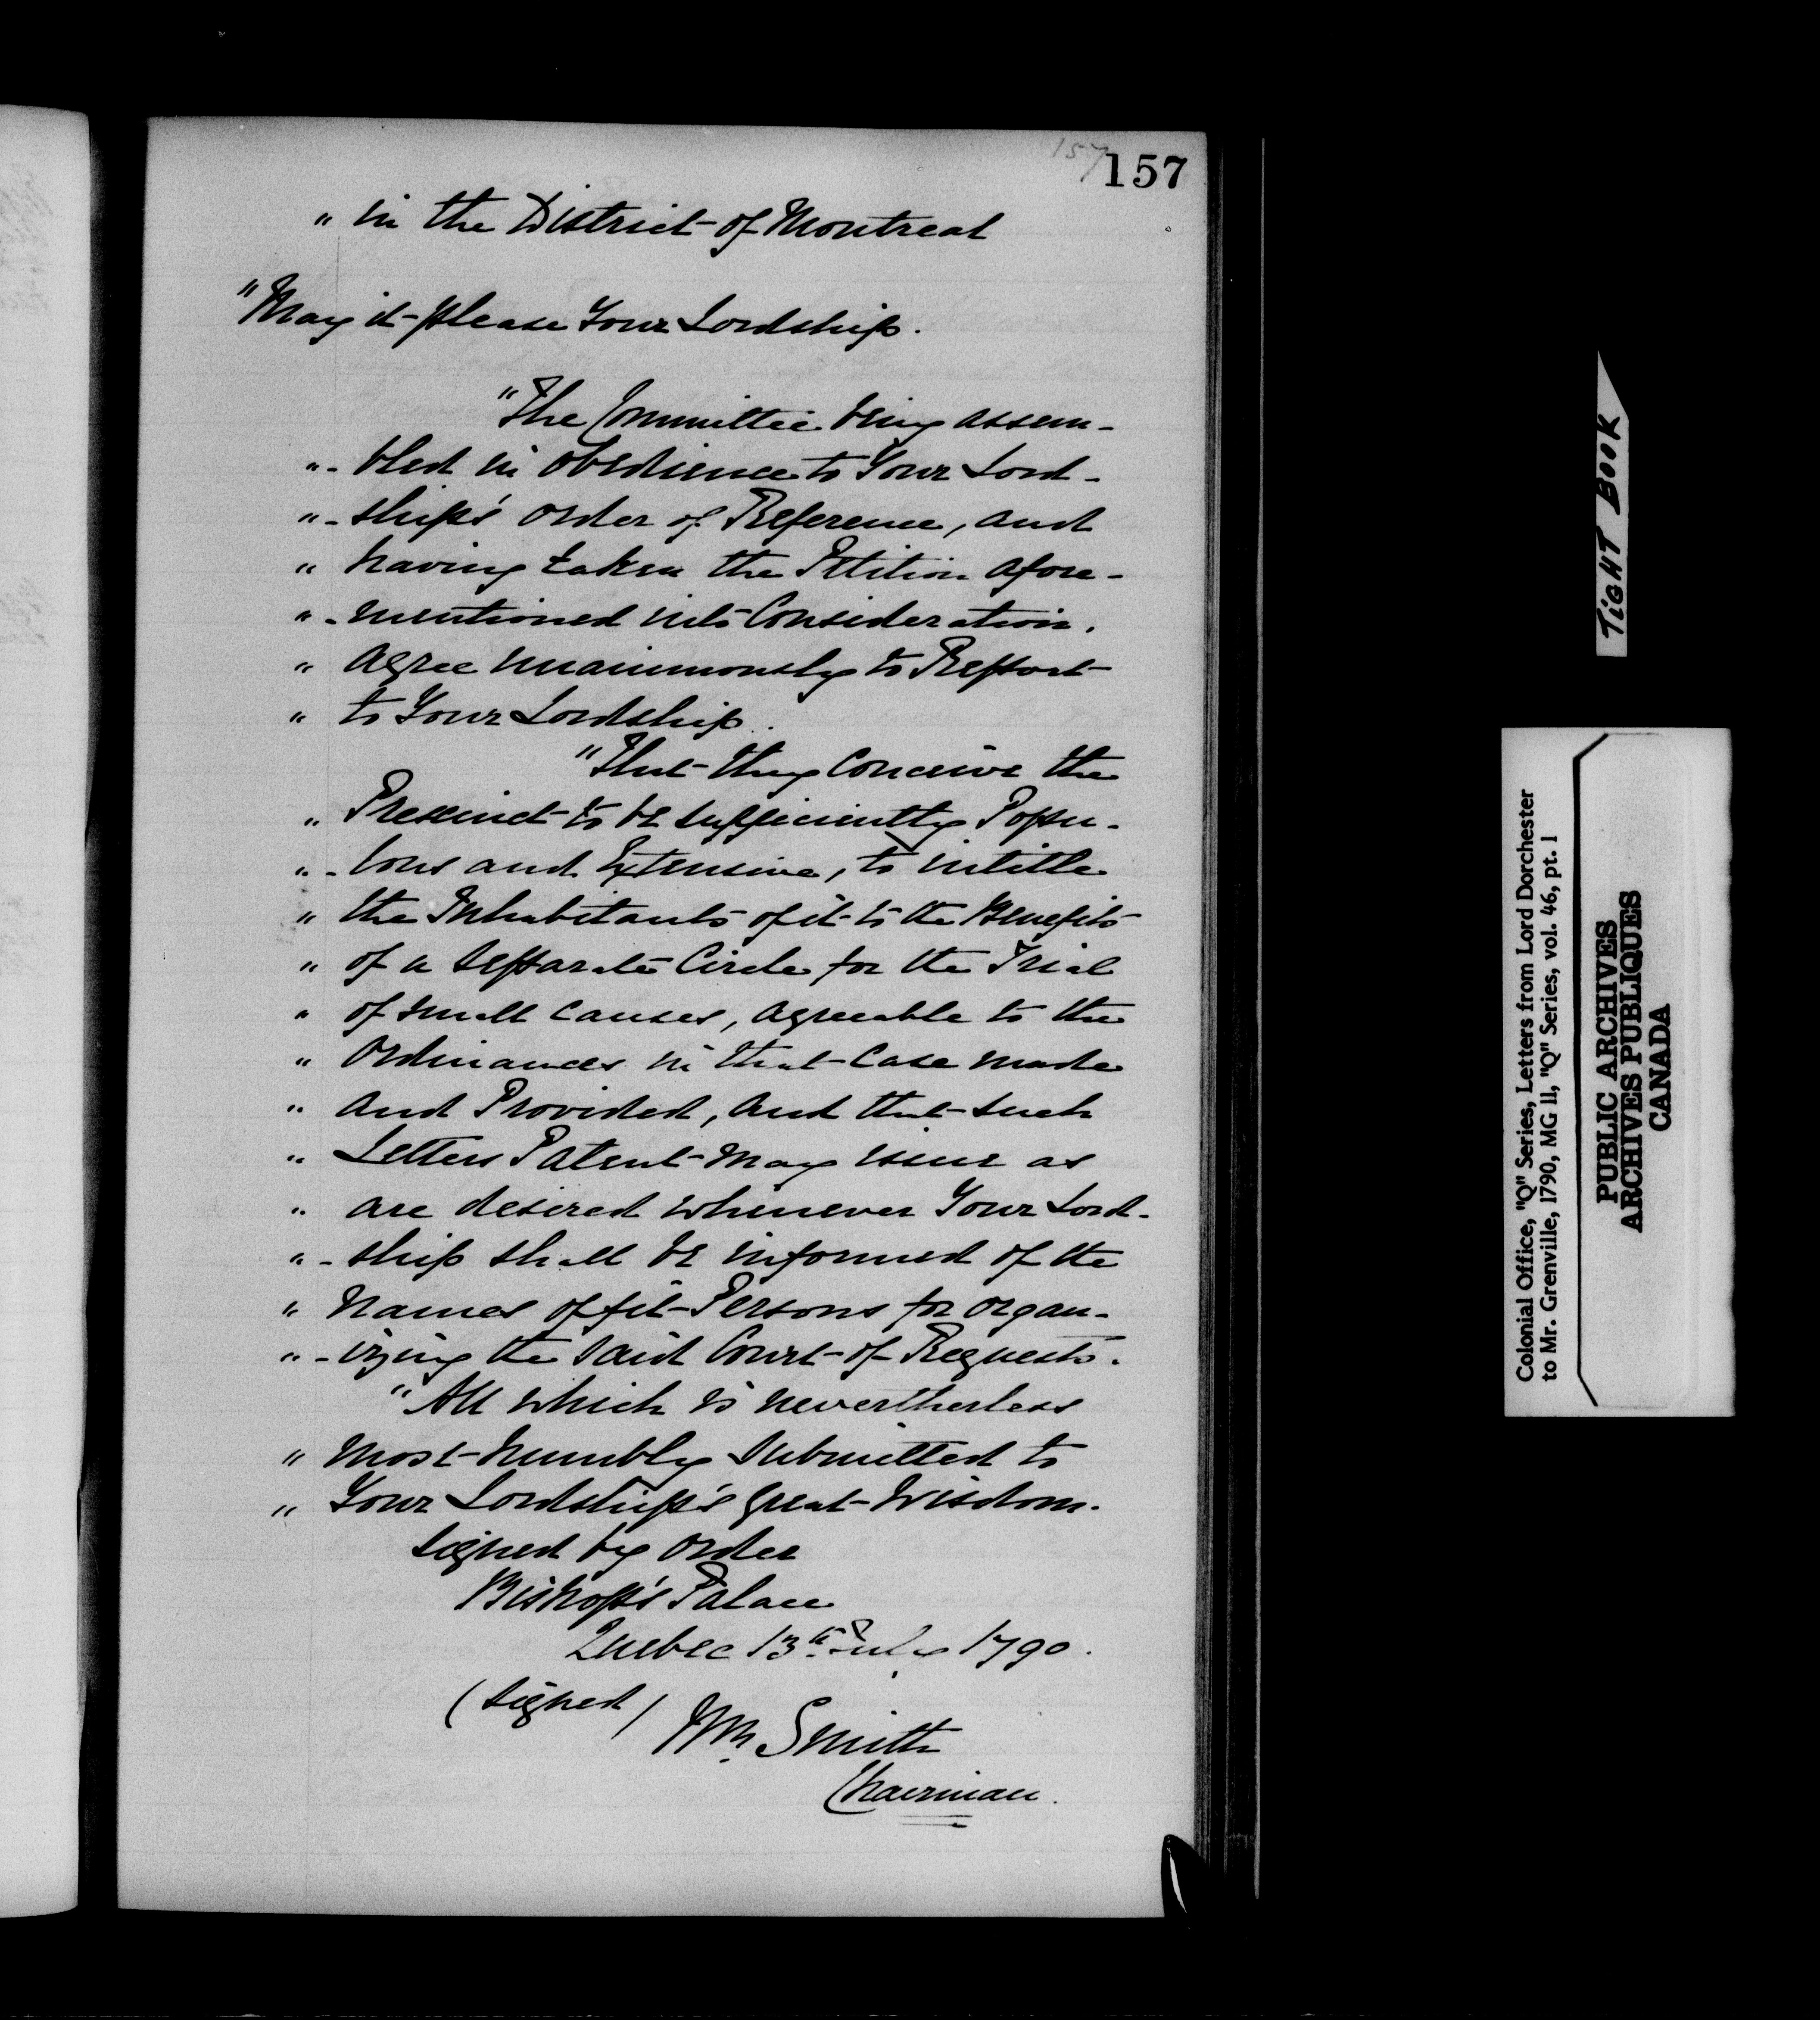 157
157
" in the District of Montreal
"May it please Your Lordship.
"The Committee being assem-
"- bled in obedience to Your Lord-
"- ship's order of Reference, and
" having taken the Petition afore-
"- mentioned into Consideration.
" agree unanimously to Report
" to Your Lordship.
"That they Conceive the
" Precinct to be sufficiently Popu-
"- lous and Extensive, to intitle
" the Inhabitants of it to the Benefits
" of a separate Circle for the Trial
" of small Causes, agreeable to the
" Ordinances in that Case made
" and Provided, and that such
" Letters Patent may issue as
" are desired whenever Your Lord-
"- ship shall be informed of the
" Names of fit Persons for organ-
"- izing the said Court of Requests.
"All which is nevertherless
" most humbly submitted to
" Your Lordship's great Wisdom.
Signed by order
Bishop's Palace
Quebec 13th July 1790.
(signed) Wm Smith
Chairman.
TiGHT BOOK
Colonial Office, "Q" Series, Letters from Lord Dorchester
to Mr. Grenville, 1790, MG 11, "Q" Series, vol. 46, pt. 1
PUBLIC ARCHIVES
ARCHIVES PUBLIQUES
CANADA